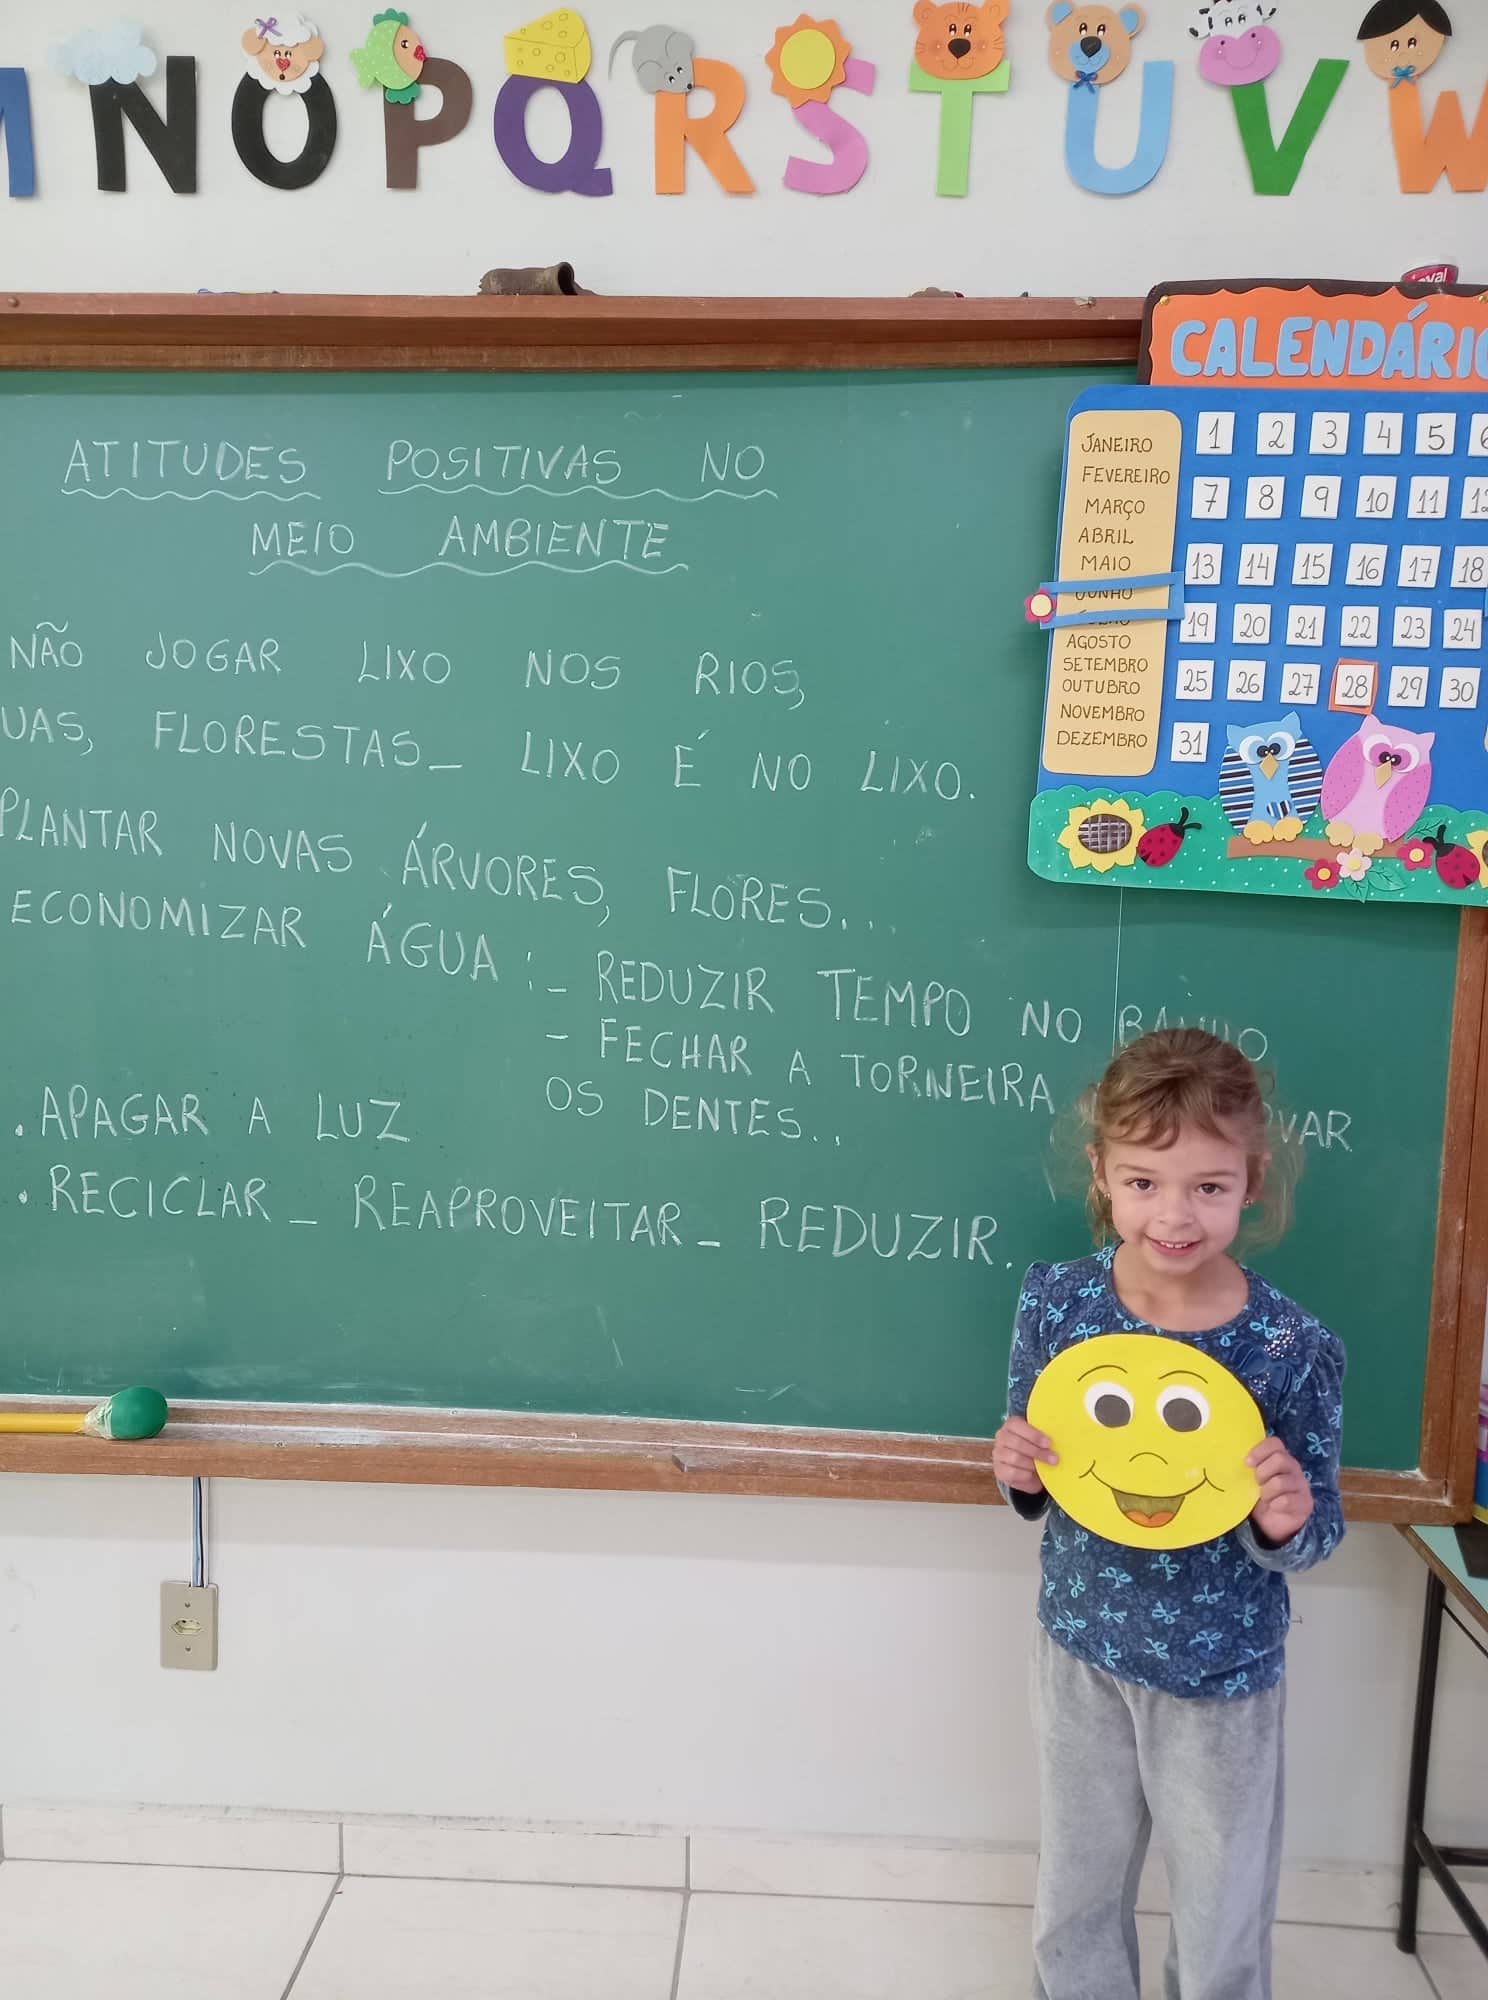 N O P Q R S T U V W
oval
CALENDÁRIO
JANEIRO
FEVEREIRO
MARÇO
ABRIL
MAIO
JUNHO
AGOSTO
SETEMBRO
OUTUBRO
NOVEMBRO
DEZEMBRO
1 2 3 4 5
7 8 9 10 11
13 14 15 16 17 18
19 20 21 22 23 24
25 26 27 28 29 30
31
ATITUDES POSITIVAS NO
MEIO AMBIENTE
NÃO JOGAR LIXO NOS RIOS,
UAS, FLORESTAS_ LIXO É NO LIXO.
PLANTAR NOVAS ÁRVORES, FLORES...
ECONOMIZAR ÁGUA: - REDUZIR TEMPO NO BANHO
- FECHAR A TORNEIRA OVAR
OS DENTES...
. APAGAR A LUZ
. RECICLAR _ REAPROVEITAR _ REDUZIR.